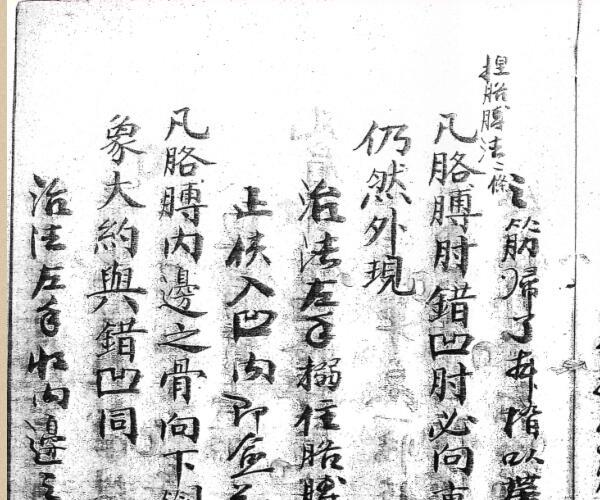 捏胳膊法二條
之筋歸了本擋以
凡胳膊肘錯凹肘必向
仍然外現
治法左手搦住胳膊
正使入凹內即
凡胳膊內邊之骨向下
象大約與錯凹同
治法左手將內邊之